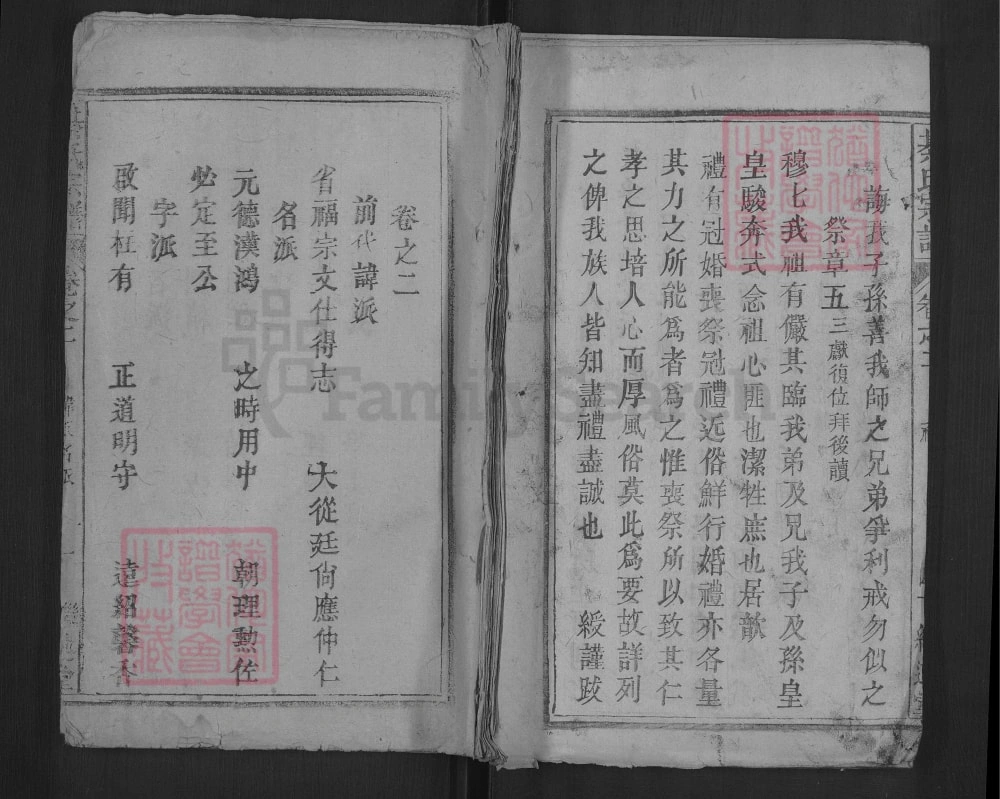 誨我子孫善我師之兄弟爭利戒勿似之
祭章五 三獻復位拜後讀
穆七我祖有儼其臨我弟及兄我子及孫皇
皇駿奔式念祖心匪也潔牲庶也居歆
禮有冠婚喪祭冠禮近俗鮮行婚禮亦各量
其力之所能爲者爲之惟喪祭所以致其仁
孝之思培人心而厚風俗莫此爲要故詳列
之俾我族人皆知盡禮盡誠也 綬謹跋
卷之二
前代諱派
省福宗文仕得志 大從廷尙應仲仁
名派
元德漢鴻 之時用中 朝理勲佐
必定至公
字派
啟聞柱有 正道明守 達紹馨香
卷之二
FamilySearch
譜學會
珍藏